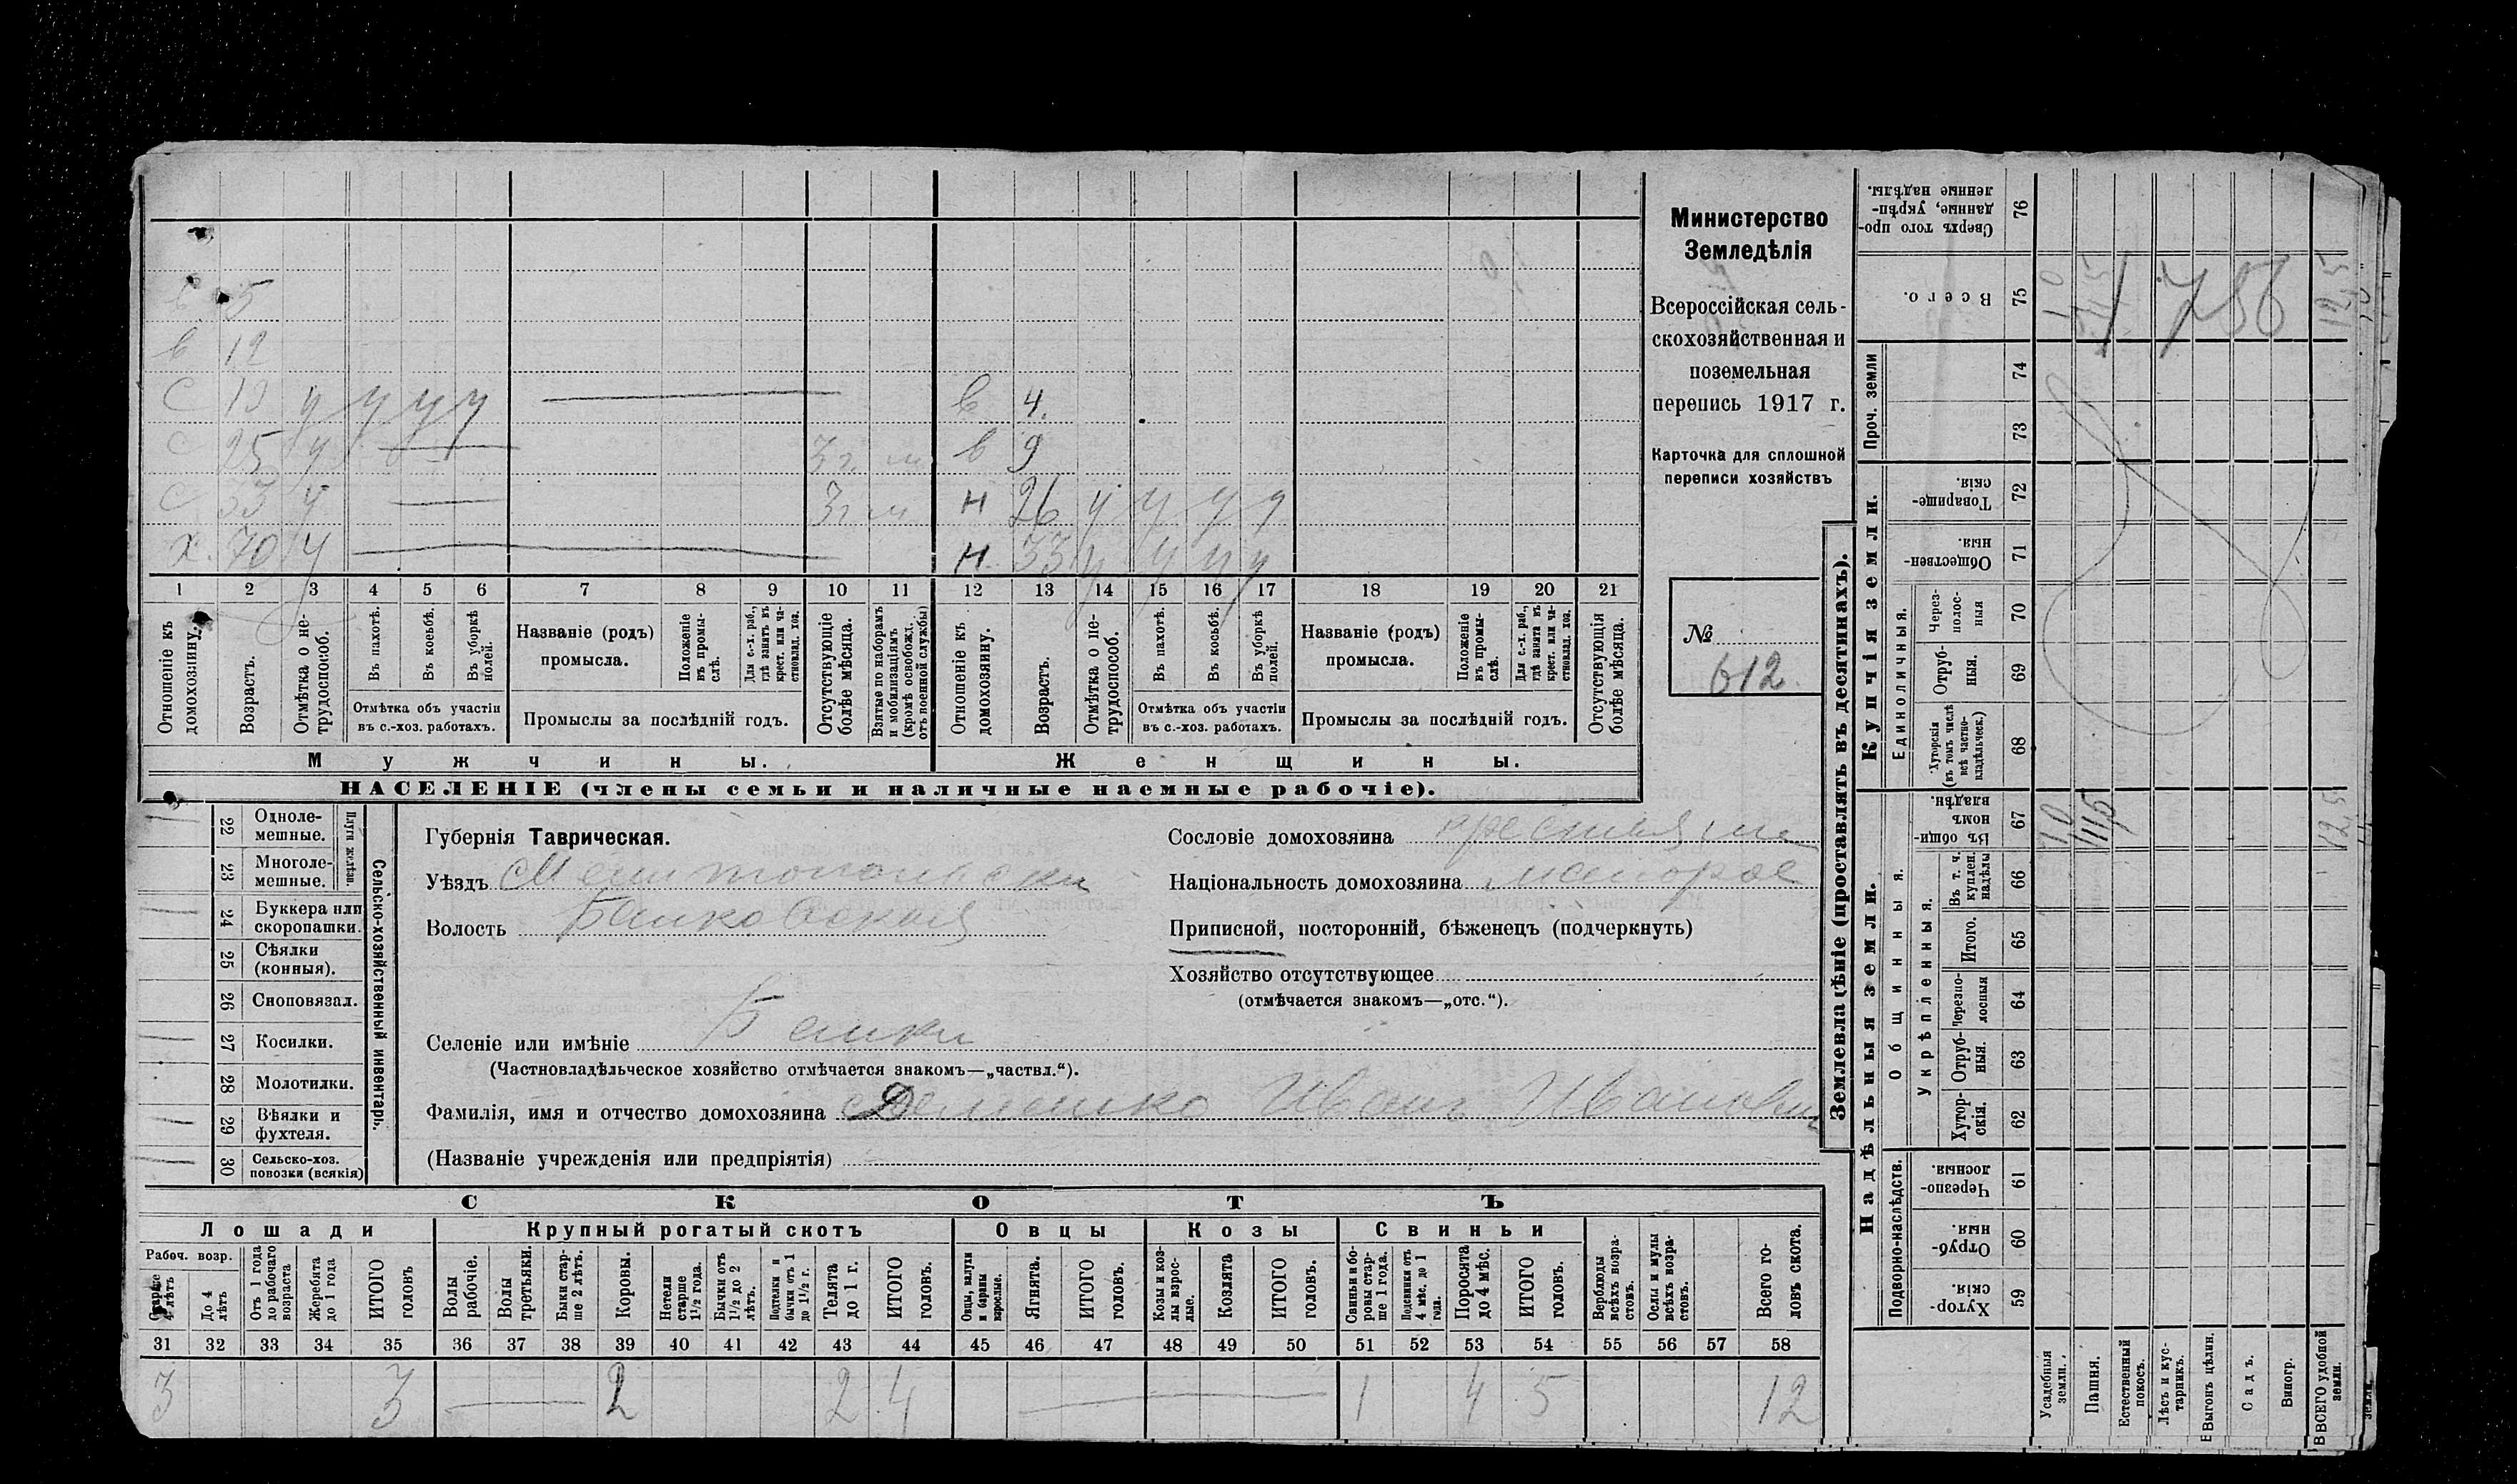 Министерство
Земледѣлія
Всероссійская сель-
скохозяйственная и
поземельная
перепись 1917 г.
Карточка для сплошной
переписи хозяйствъ
№
612
в 5
в 12
С 19 у у у у
в 4
С 25 у
3 г. м
в 9
С 33 у
3 г. м
н 26 у у у у
х. 70 у
н 33 у у у у
1 2 3 4 5 6 7 8 9 10 11 12 13 14 15 16 17 18 19 20 21
Отношеніе къ домохозяину.
Возрастъ.
Отмѣтка о не-трудоспособ.
Въ пахотѣ.
Въ косьбѣ.
Въ уборкѣ полей.
Отмѣтка объ участіи
въ с.-хоз. работахъ.
Названіе (родъ)
промысла.
Положеніе въ промы-слѣ.
Для с.-х. раб., гдѣ занятъ въ крест. или ча-стновлад. хоз.
Промыслы за послѣдній годъ.
Отсутствующіе болѣе мѣсяца.
Взятые по наборамъ и мобилизаціямъ (кромѣ освобожд. отъ военной службы)
Отношеніе къ домохозяину.
Возрастъ.
Отмѣтка о не-трудоспособ.
Въ пахотѣ.
Въ косьбѣ.
Въ уборкѣ полей.
Отмѣтка объ участіи
въ с.-хоз. работахъ.
Названіе (родъ)
промысла.
Положеніе въ промы-слѣ.
Для с.-х. раб., гдѣ занята въ крест. или ча-стновлад. хоз.
Промыслы за послѣдній годъ.
Отсутствующія болѣе мѣсяца.
Мужчины.
Женщины.
НАСЕЛЕНІЕ (члены семьи и наличные наемные рабочіе).
Сельско-хозяйственный инвентарь.
Плуги желѣзн.
22 Одноле-мешные.
23 Многоле-мешные.
24 Буккера или скоропашки.
25 Сѣялки (конныя).
26 Сноповязал.
27 Косилки.
28 Молотилки.
29 Вѣялки и фухтеля.
30 Сельско-хоз. повозки (всякія)
Губернія Таврическая.
Уѣздъ Мелитопольски
Волость Балковская
Селеніе или имѣніе Балки
(Частновладѣльческое хозяйство отмѣчается знакомъ—„частвл.“).
Фамилія, имя и отчество домохозяина Иванъ Иванови
(Названіе учрежденія или предпріятія)
Сословіе домохозяина
Національность домохозяина малорос
Приписной, посторонній, бѣженецъ (подчеркнуть)
Хозяйство отсутствующее
(отмѣчается знакомъ—„отс.“).
СКОТЪ
Лошади
Крупный рогатый скотъ
Овцы
Козы
Свиньи
Рабоч. возр.
Старше 4 лѣтъ
До 4 лѣтъ
Отъ 1 года до рабочаго возраста
Жеребята до 1 года
ИТОГО головъ
Волы рабочіе.
Волы третьяки.
Быки стар-ше 2 лѣтъ.
Коровы.
Нетели старше 1½ года.
Бычки отъ 1½ до 2 лѣтъ.
Подтелки и бычки отъ 1 до 1½ г.
Телята до 1 г.
ИТОГО головъ.
Овцы, валухи и бараны взрослые.
Ягнята.
ИТОГО головъ.
Козы и коз-лы взрос-лые.
Козлята
ИТОГО головъ.
Свиньи и бо-ровы стар-ше 1 года.
Подсвинки отъ 4 мѣс. до 1 года.
Поросята до 4 мѣс.
ИТОГО головъ.
Верблюды всѣхъ возра-стовъ.
Ослы и мулы всѣхъ возра-стовъ.
Всего го-ловъ скота.
31 32 33 34 35 36 37 38 39 40 41 42 43 44 45 46 47 48 49 50 51 52 53 54 55 56 57 58
3 3 2 2 4 1 4 5 12
Землевладѣніе (проставлять въ десятинахъ).
Надѣльныя земли.
Купчія земли.
Проч. земли
Подворно-наслѣдств.
Общинныя.
Укрѣпленныя.
Единоличныя.
Сверхъ того про-данные, укрѣп-ленные надѣлы. 76
Всего. 75
74
73
Товарище-скія. 72
Обществен-ныя. 71
Через-полос-ныя 70
Отруб-ныя. 69
Хуторскія (въ томъ числѣ всѣ частно-владѣльческ.) 68
Въ общи-номъ владѣн. 67
Въ т. ч. куплен. надѣлы 66
Итого. 65
Черезпо-лосныя 64
Отруб-ныя. 63
Хутор-скія. 62
Черезпо-лосныя. 61
Отруб-ныя. 60
Хутор-скія. 59
Усадебныя земли.
Пашня.
Естественный покосъ.
Лѣсъ и кус-тарникъ.
Выгонъ цѣлин.
Садъ.
Виногр.
ВСЕГО удобной земли.
1,0
11,5
12,5
756